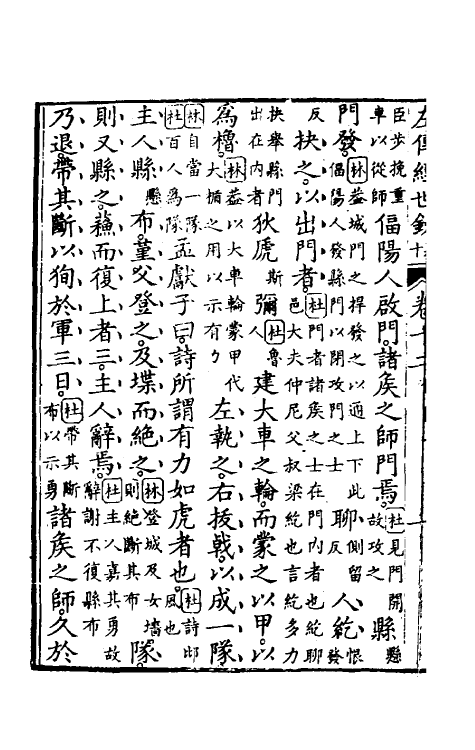 左傳經世鈔 卷十二
臣步挽重車以從師偪陽人啟門諸矦之師門焉杜見門開故攻之縣懸
門發林葢城門之捍發之以通上下此偪陽人發縣門以閉攻門之士聊側留反人紇恨發
反抉之以出門者杜門者諸矦之士在門內者也紇聊邑大夫仲尼父叔梁紇也言紇多力
抉舉縣門出在內者狄虎斯彌杜魯人建大車之輪而蒙之以甲以
爲櫓林葢以大車輪蒙甲代大楯之用以示有力左執之右拔戟以成一隊
林自當一隊杜百人爲隊孟獻子曰詩所謂有力如虎者也杜詩邶風也
主人縣懸布堇父登之及堞而絕之林登城及女墻則絕斷其布隊
則又縣之蘇而復上者三主人辭焉杜主人嘉其勇故辭謝不復縣布
乃退帶其斷以狥於軍三日杜帶其斷布以示勇諸矦之師久於